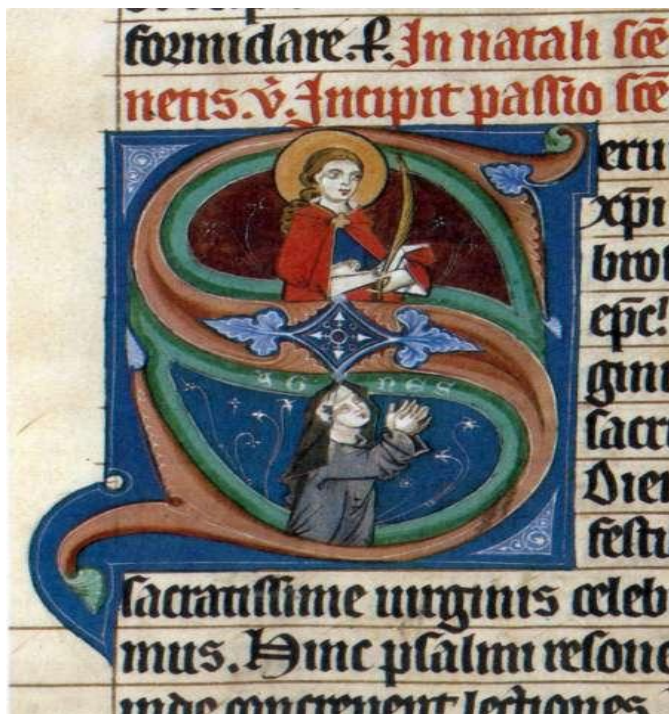 formidare. R. In natali sc̄e
netis. v̄. Incipit passio sc̄e
S eru
xp̄i
brot
ep̄c
AGNES
gini
sacri
Dien
festi
sacratissime uirginis celeb
mus. Hinc psalmi resone
inde concrepent lectiones